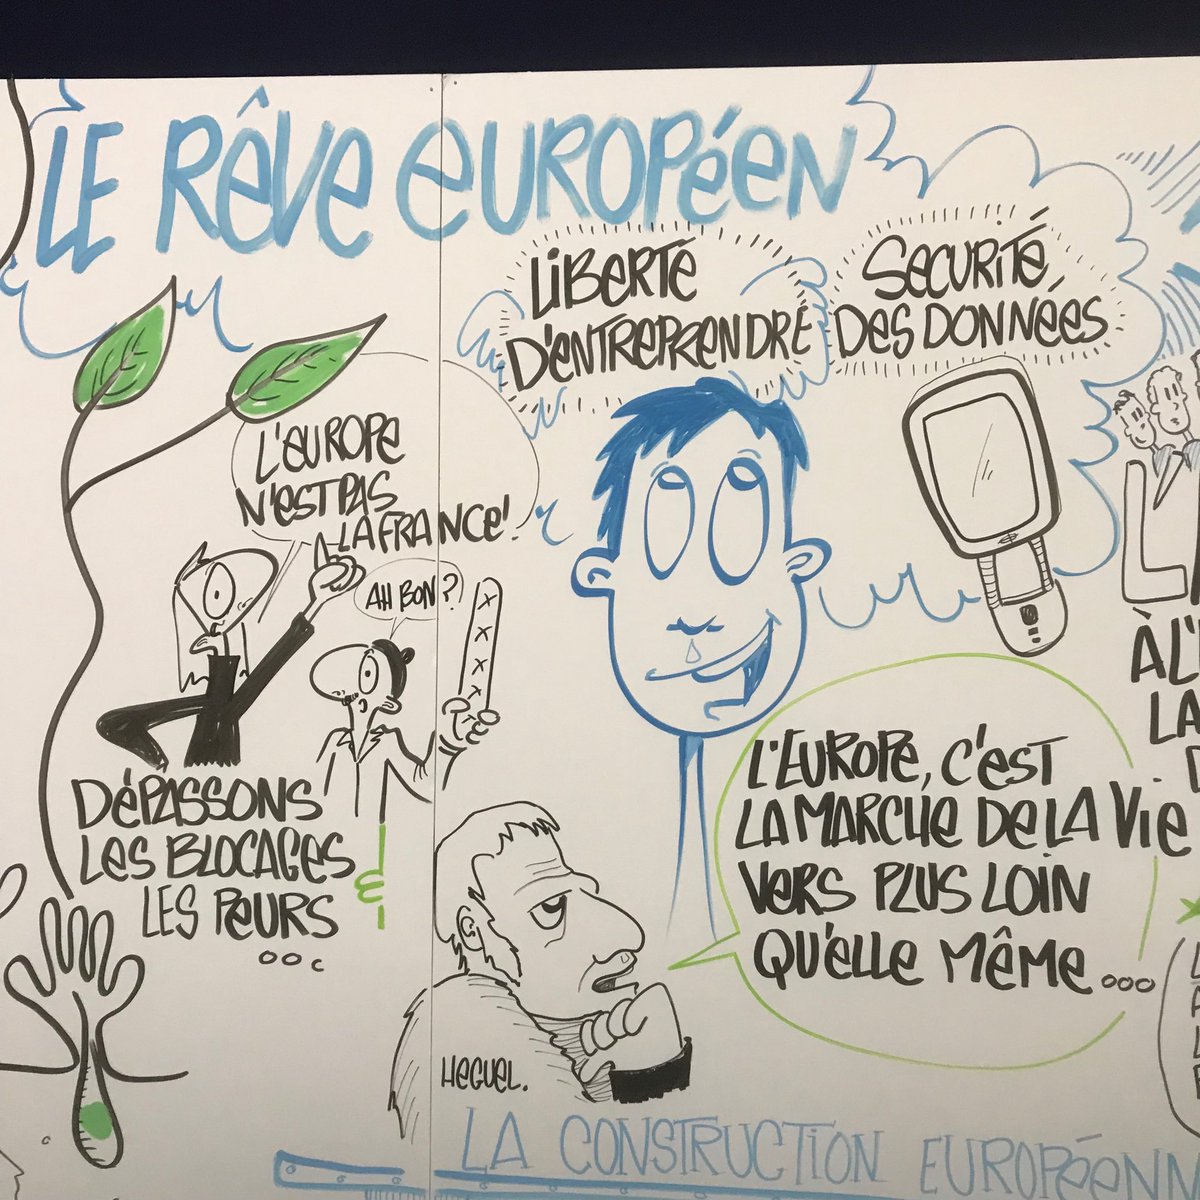 LE RÊVE EUROPÉEN
LIBERTÉ
D'ENTREPRENDRE
SECURITÉ
DES DONNÉES
L'EUROPE
N'EST PAS
LA FRANCE!
AH BON?
DÉPASSONS
LES BLOCAGES
LES PEURS
...
L'EUROPE, C'EST
LA MARCHE DE LA VIE
VERS PLUS LOIN
QU'ELLE MÊME...
HEGUEL.
À L'
LA
LA CONSTRUCTION EUROPÉENN